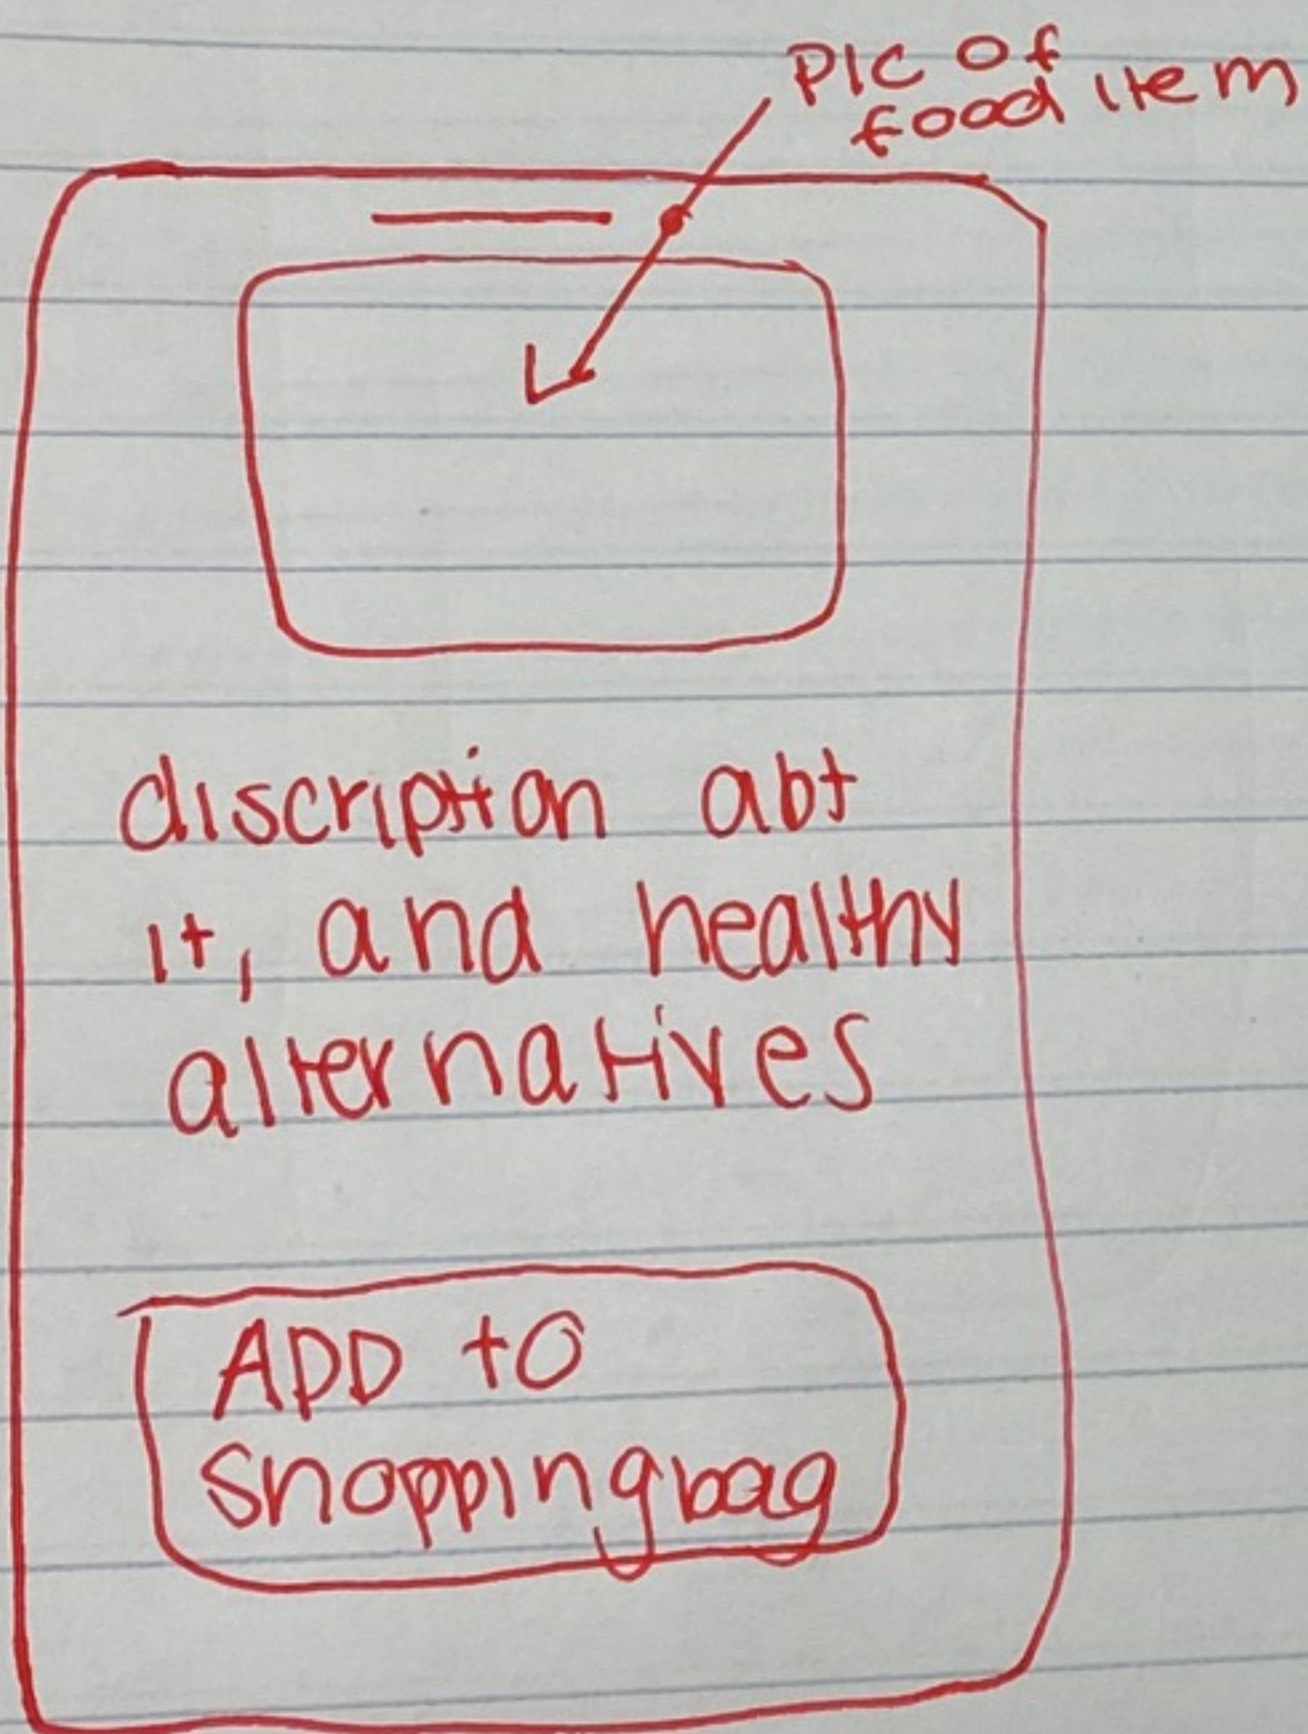 PIC Of
food item
discription abt
it, and healthy
alternatives
ADD to
shoppingbag